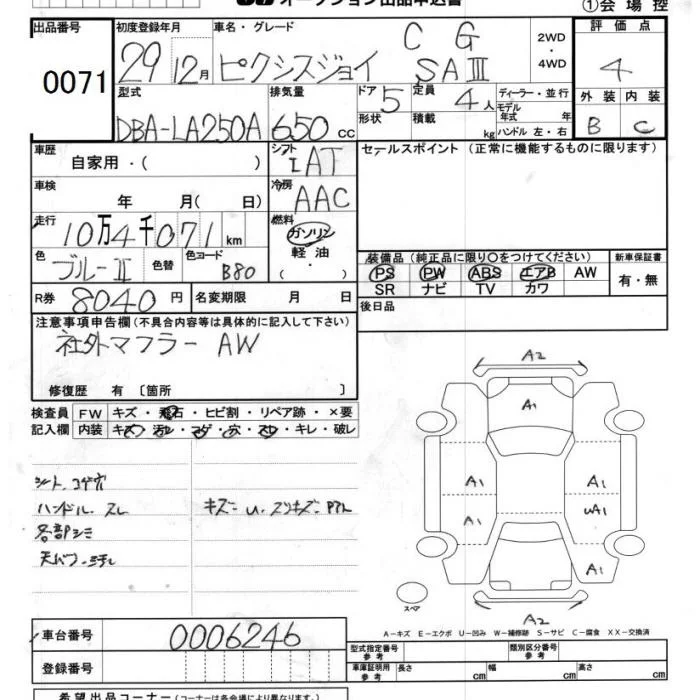 オークション出品申込書 ①会場控
出品番号 初度登録年月 車名・グレード 評価点
0071 29 12月 ピクシスジョイ C G SAⅢ 2WD・4WD 4
型式 排気量 ドア 5 定員 4人 ディーラー・並行 外装 内装
DBA-LA250A 650cc 形状 積載 kg モデル年式 年 ハンドル 左・右 B C
車歴 自家用・( ) シフト IAT セールスポイント (正常に機能するものに限ります)
車検 年 月( 日) 冷房 AAC
走行 10万4千071km 燃料 ガソリン 軽油 ( ・ )
色 ブルーⅡ 色替 色コード B80 装備品 (純正品に限り〇をつけてください) 新車保証書
PS PW ABS エアB AW 有・無
R券 8040円 名変期限 月 日 SR ナビ TV カワ
注意事項申告欄 (不具合内容等は具体的に記入して下さい) 後日品
社外マフラー AW
修復歴 有 [箇所 ]
検査員 FW キズ・飛石・ヒビ割・リペア跡・×要
記入欄 内装 キズ・汚レ・コゲ・穴・スレ・キレ・破レ
シート.コゲ穴
ハンドル.スレ キズ.U.スリキズ.
各部シミ
A2
A1
A1 A1
A1 UA1
A1
A2
スペア
A-キズ E-エクボ U-凹み W-補修跡 S-サビ C-腐食 XX-交換済
車台番号 0006246
型式指定番号 参考 類別区分番号 参考
登録番号 車庫証明用 参考 長さ cm 幅 cm 高さ cm
希望出品コーナー (コーナーは各会場により異なります。)